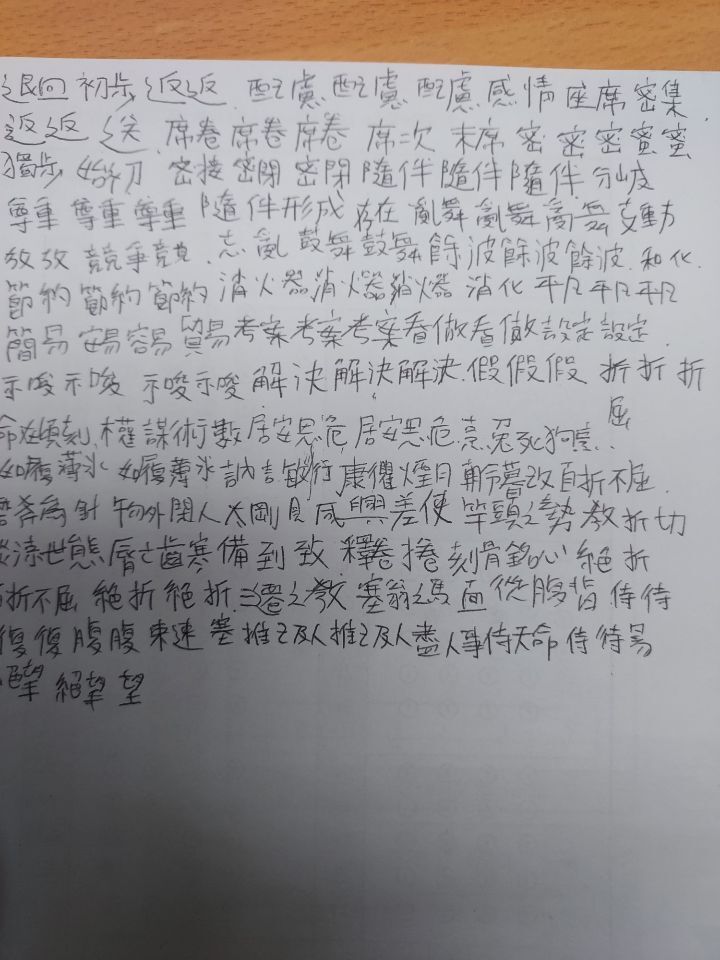 退回 初步 返返 配慮 配慮 配慮 感情 座席 密集
返返 送 席卷 席卷 席卷 席次 末席 密 密 密 蜜 蜜
獨步 始初 密接 密閉 密閉 隨伴 隨伴 隨伴 分岐
尊重 尊重 尊重 隨伴 形成 存在 亂舞 亂舞 亂舞 支動
放放 競爭 競 志 亂 鼓舞 鼓舞 餘波 餘波 餘波 和 化
節約 節約 節約 消火器 消火器 消火器 消化 平凡 平凡 平凡
簡易 安易 容易 貿易 考案 考案 考案 看做 看做 設定 設定
示唆 示唆 示唆 示唆 解決 解決 解決 假 假 假 折 折 折
屈
命在傾刻 權謀術數 居安思危 居安思危 兔死狗烹
如履薄氷 如履薄氷 訥言敏行 康衢煙月 朝令暮改 百折不屈
為針 物外閑人 太剛 咸興差使 竿頭之勢 教 折 切
淡 世態 脣亡齒寒 備 到 致 釋卷 捲 刻骨銘心 絕 折
折不屈 絕 折 絕 折 三遷之敎 塞翁之馬 面從腹背 侍 待
復 復 腹 腹 束 速 塞 推己及人 推己及人 盡人事待天命 侍 待 易
望 絕望 望